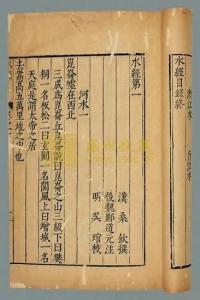 漸江水　斤江水
水經目錄終
水經第一
漢　桑欽撰
後魏酈道元注
明　吳琯校
河水一
崑崙墟在西北
三成爲崑崙丘崑崙說曰崑崙之山三級下曰樊
桐一名板松二曰玄圃一名閬風上曰增城一名
天庭是謂太帝之居
去嵩高五萬里地之中也